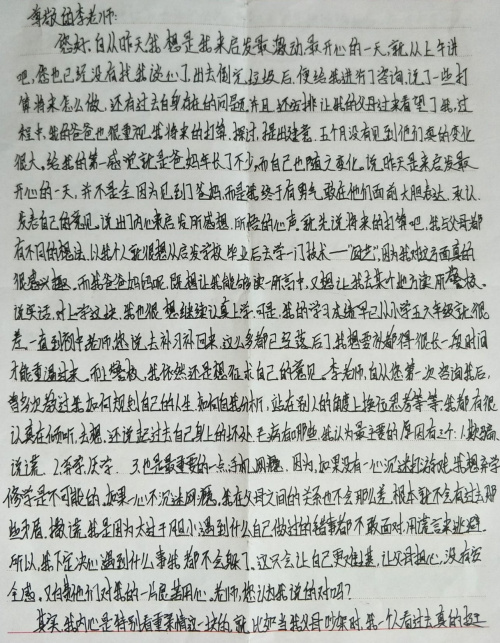 尊敬的李老师:
您好,自从昨天我想是我来启发最激动最开心的一天,就从上午讲
吧,您也已经没有找我谈心了,出去倒完垃圾后,便给我进行了咨询,说了一些打
算将来怎么做,还有过去自身存在的问题,并且还安排让我的父母过来看望了我,过
程中,我的爸爸也很重视我将来的打算,探讨,提出建意,五个月没有见到他们真的变化
很大,给我的第一感觉就是爸妈年长了不少,而自己也随之变化,说昨天是来启发最
开心的一天,并不是全因为见到了爸妈,而是我终于有勇气敢在他们面前大胆表达,承认,
发表自己的意见,说出了内心来启发所感想,所悟的心声,就先说将来的打算吧,我与父母都
有不同的想法,以我个人就很想从启发学校毕业后去学一门技术——"厨艺",因为我对这方面真的
很感兴趣,而我爸爸妈妈呢,既想让我能够读一所高中,又想让我去某个地方读所警校,
说实话,对上学这块,我也很想继续认真上学,可是,我的学习成绩早已从小学五六年级就很
差,一直到初中,老师您说去补习补回来,这么多都已经落后了,我想要补都得很长一段时间
才能重温过来,而上警校,我依然还是想征求自己的意见,李老师,自从您第一次咨询我后,
曾多次教过我如何规划自己的人生,如何自我分析,站在别人的角度上换位思考等等,我都有很
认真在倾听,去想,还说起过去自己身上的坏处,毛病有哪些,我认为最主要的原因有三个:1.欺骗,
说谎 2.弃学,厌学. 3.也是最重要的一点,手机,网瘾,因为,如果没有一心沉迷打游戏,我想弃学
修学是不可能的,如果一心不沉迷网瘾,我在父母之间的关系也不会那么差,根本就不会有过去那
些矛盾,撒谎,我是因为太过于胆小,遇到什么自己做过的错事都不敢面对,用谎言来逃避,
所以,我下定决心遇到什么事我都不会躲了,这只会让自己更难堪,让父母担心,没有安
全感,又白费他们对我的一片良苦用心,老师,您认为我说的对吗?
其实,我内心是特别看重亲情这一块的,就比如当我父母吵架时,我一个人看过去真的挺